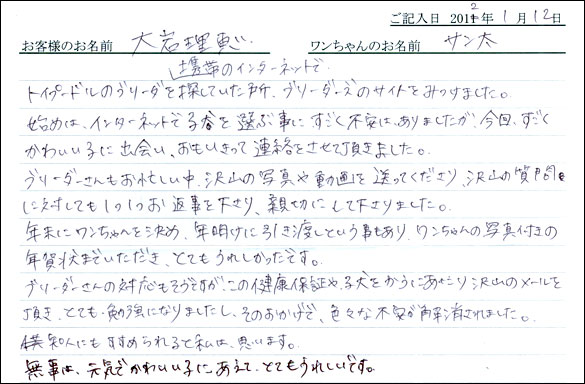 ご記入日 2012年1月12日
お客様のお名前 大岩理恵 ワンちゃんのお名前 サン太
携帯のインターネットで
トイプードルのブリーダを探していた所、ブリーダーズのサイトをみつけました。
始めは、インターネットで子犬を選ぶ事にすごく不安はありましたが、今回、すごく
かわいい子に出会い、おもいきって連絡をさせて頂きました。
ブリーダーさんもお忙しい中、沢山の写真や動画を送ってくださり、沢山の質問
に対しても1つ1つお返事を下さり、親切にして下さりました。
年末にワンちゃんを決め、年明けに引き渡しという事もあり、ワンちゃんの写真付きの
年賀状までいただき、とてもうれしかったです。
ブリーダーさんの対応もそうですが、この健康保証や子犬をかうにあたり沢山のメールを
頂き、とても勉強になりましたし、そのおかげで、色々な不安が解消されました。
知人にもすすめられると私は、思います。
無事に、元気でかわいい子にあえて、とてもうれしいです。